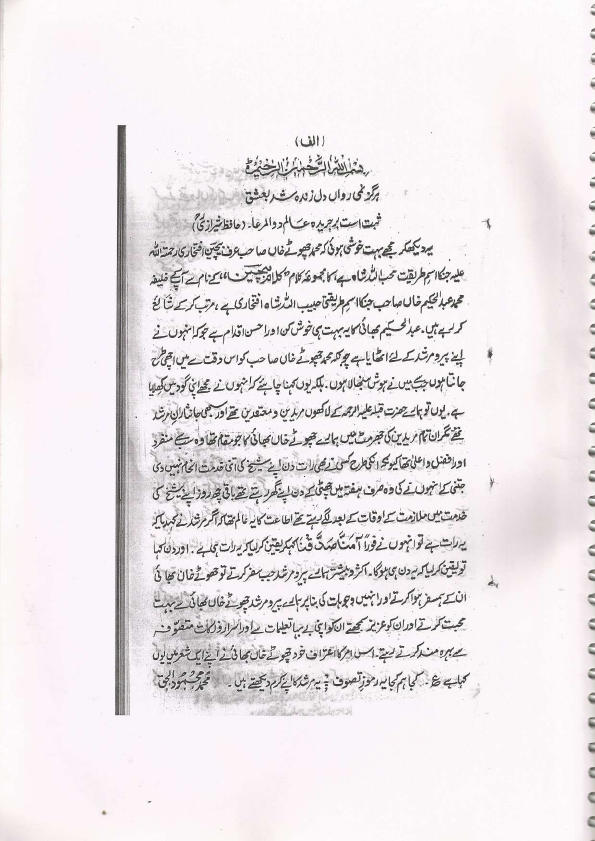 (الف)
بسم اللہ الرحمٰن الرحیم
ہرگز نمی رواں دل زندہ شد بعشق
ثبت است بر جریدہ عالم دوالمرعا۔ (حافظ شیرازیؒ)
یہ دیکھکر مجھے بہت خوشی ہوئی کہ محمد چھوٹے خاں صاحب عرف بیچین افتخاری رحمتہ اللہ
علیہ جنکا اسم طریقیت محب اللہ شاہ ہے، کا مجموعہ کلام "گلزار بیچین"، کے نام سے آپکے خلیفہ
محمد عبدالحکیم خاں صاحب جنکا اسم طریقتی حبیب اللہ شاہ افتخاری ہے، مرتب کر کے شائع
کر رہے ہیں۔ عبدالحکیم بھائی کا یہ بہت ہی خوش کن اور احسن اقدام ہے جو کہ انہوں نے
اپنے پیر و مرشد کے لئے اٹھایا ہے چونکہ محمد چھوٹے خاں صاحب کو اس وقت سے میں اچھی طرح
جانتا ہوں جب میں نے ہوش سنبھالا ہوں۔ بلکہ یوں کہنا چاہئے کہ انہوں نے مجھے اپنی گود میں کھلایا
ہے۔ یوں تو ہمارے حضرت قبلہ علیہ الرحمہ کے لاکھوں مریدین و معتقدین تھے اور سبھی جانثاران مرشد
تھے مگر ان تمام مریدین کی جھرمٹ میں ہمارے چھوٹے خاں بھائی کا جو مقام تھا وہ سب سے منفرد
اور افضل و اعلیٰ تھا کیونکہ انکی طرح کسی نے بھی رات دن اپنے شیخ کی اتنی خدمت انجام نہیں دی
جتنی کے انہوں نے کی وہ صرف ہفتہ میں چھٹی کے دن اپنے گھر رہتے تھے باقی چھ روز اپنے شیخ کی
خدمت میں ملازمت کے اوقات کے بعد لگے رہتے تھے اطاعت کا یہ عالم تھا کہ اگر مرشد نے کہدیا کہ
یہ رات ہے تو انہوں نے فوراً آمنّا صدّقنا کہکر یقین کر لیا کہ یہ رات ہی ہے۔ اور دن کہا
تو یقین کر لیا کہ یہ دن ہی ہوگا۔ اکثر و بیشتر ہمارے پیر و مرشد جب سفر کرتے تو چھوٹے خاں بھائی
ان کے ہمسفر ہوا کرتے اور انہیں وجوہات کی بنا پر ہمارے پیر و مرشد چھوٹے خاں بھائی سے بہت
محبت کرتے اور ان کو عزیز سمجھتے ان کو اپنی بے بہا تعلیمات سے اور اسرار و نکات متصوفہ
سے بہرہ مند کرتے رہتے۔ اس امر کا اعتراف خود چھوٹے خاں بھائی نے اپنے ایک شعر میں یوں
کہا ہے ؏ کجا ہم کجا یہ رموزِ تصوف ؛ یہ مرشد کا اپنے کرم دیکھتے ہیں۔ محمد محمود الحق